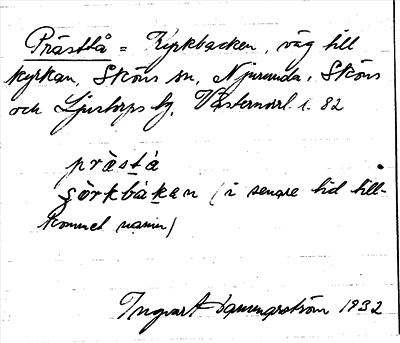 Prästtå = Kyrkbacken, väg till
kyrkan, Sköns sn, Njurunda, Sköns
och Ljustorps tg, Västernorrl. l. 82
prästå
körkbakan (i senare tid till-
kommet namn)
Ingvart Hammarström 1932